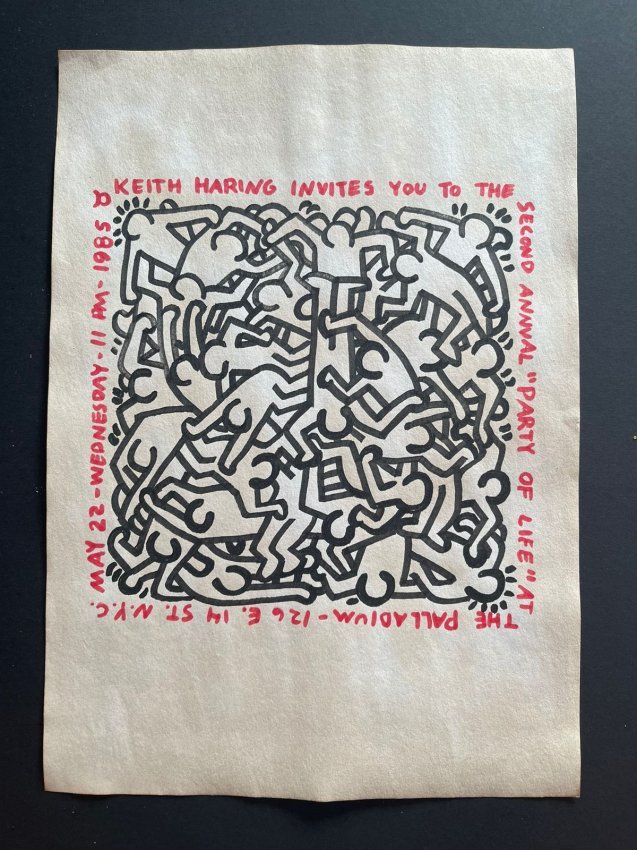 KEITH HARING INVITES YOU TO THE
SECOND ANNUAL "PARTY OF LIFE" AT
THE PALLADIUM - 126 E. 14 ST. N.Y.C.
MAY 22 - WEDNESDAY - 11 PM - 1985